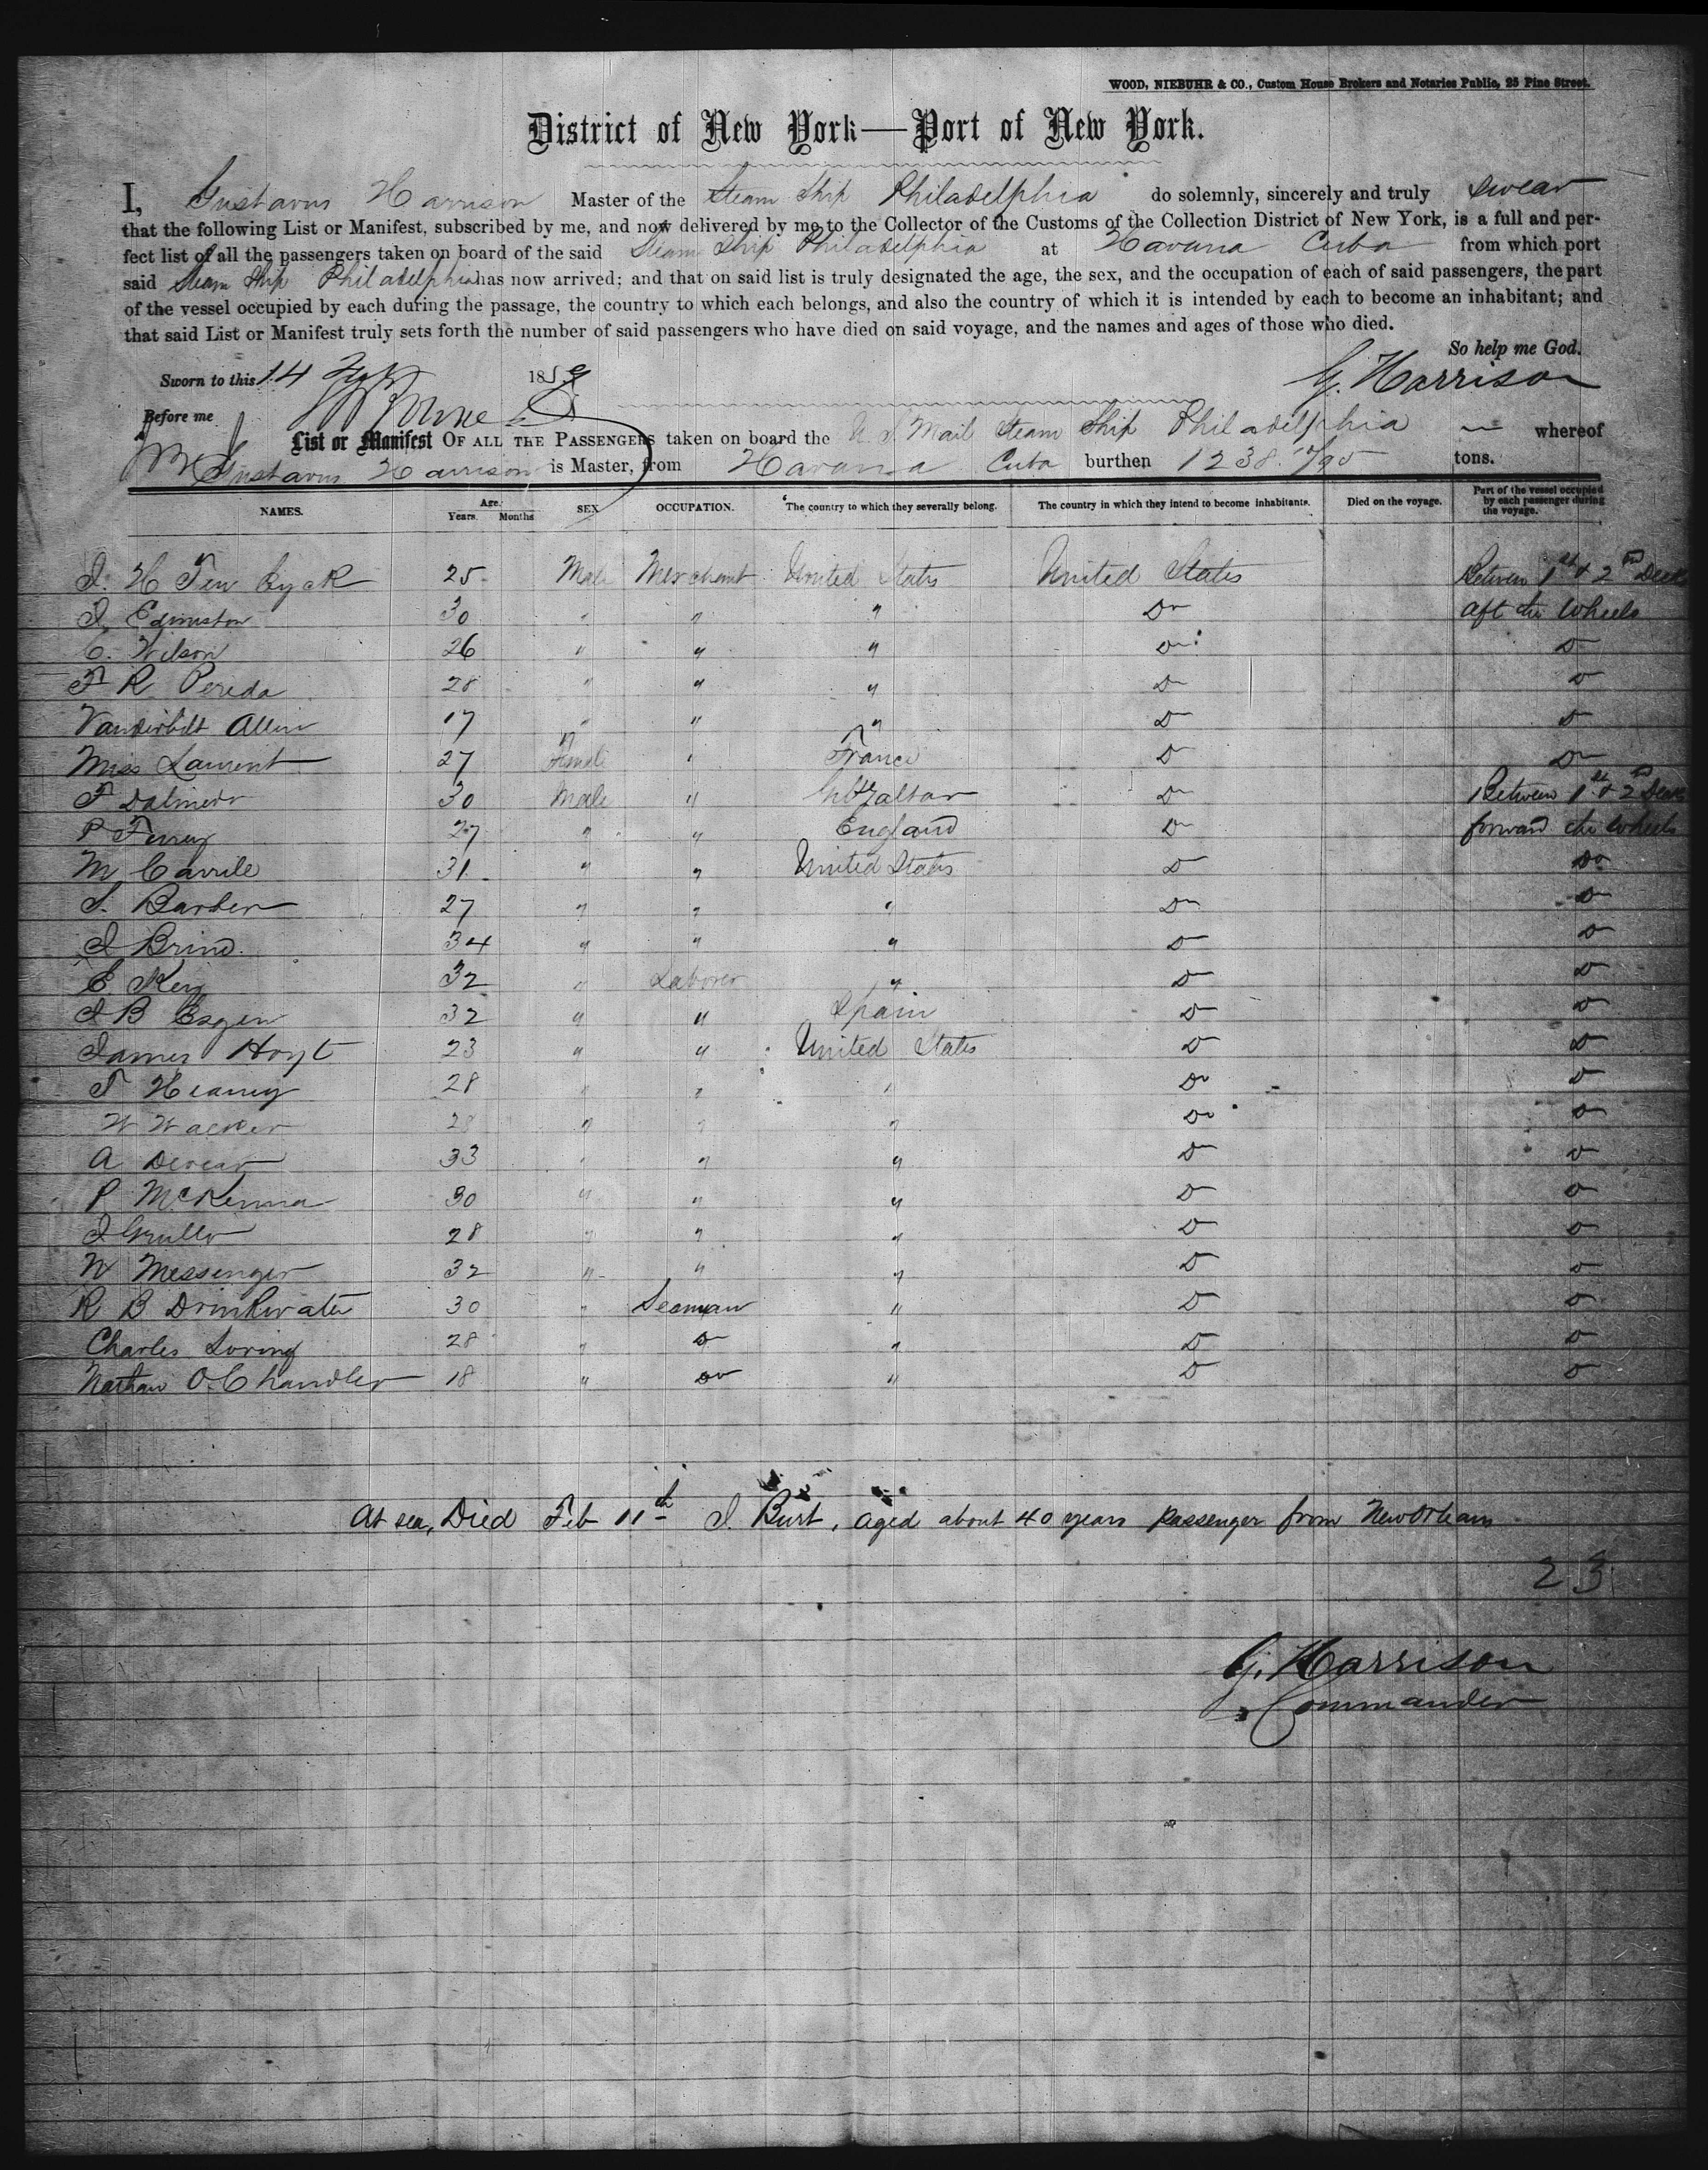 WOOD, NIEBUHR & CO., Custom House Brokers and Notaries Public, 25 Pine Street.
District of New York—Port of New York.
I, Gustavus Harrison Master of the Steam Ship Philadelphia do solemnly, sincerely and truly swear
that the following List or Manifest, subscribed by me, and now delivered by me to the Collector of the Customs of the Collection District of New York, is a full and per-
fect list of all the passengers taken on board of the said Steam Ship Philadelphia at Havana Cuba from which port
said Steam Ship Philadelphia has now arrived; and that on said list is truly designated the age, the sex, and the occupation of each of said passengers, the part
of the vessel occupied by each during the passage, the country to which each belongs, and also the country of which it is intended by each to become an inhabitant; and
that said List or Manifest truly sets forth the number of said passengers who have died on said voyage, and the names and ages of those who died.
So help me God.
Sworn to this 14 1859 G. Harrison
Before me
List or Manifest OF ALL THE PASSENGERS taken on board the U S Mail Steam Ship Philadelphia whereof
Gustavus Harrison is Master, from Havana Cuba burthen 1238 /95 tons.
NAMES. Age. Years. Months SEX OCCUPATION. The country to which they severally belong. The country in which they intend to become inhabitants. Died on the voyage. Part of the vessel occupied by each passenger during the voyage.
J. H Ten Eyck 25 Male Merchant United States United States Between 1st & 2nd Decks
J. Edmiston 30 " " " Do aft the Wheels
C. Wilson 26 " " " Do Do
F R Pereda 28 " " " Do Do
Vanderbilt Allen 17 " " " Do Do
Miss Laurent 27 Female " France Do Do
F 30 Male " Gibraltar Do Between 1st & 2nd Decks
P 27 " " England Do forward the Wheels
M 31 " " United States Do Do
S. Barber 27 " " " Do Do
J 34 " " " Do Do
E. Key 32 " Laborer " Do Do
J B 32 " " Spain Do Do
James Hoyt 23 " " United States Do Do
T Heaney 28 " " " Do Do
W 28 " " " Do Do
A 33 " " " Do Do
P McKenna 30 " " " Do Do
J 28 " " " Do Do
W Messenger 32 " " " Do Do
R B Drinkwater 30 " Seaman " Do Do
Charles Loring 28 " Do " Do Do
Nathan O. Chandler 18 " Do " Do Do
At sea, Died Feb 11th J. Burt, aged about 40 years passenger from New Orleans
23
G. Harrison
Commander